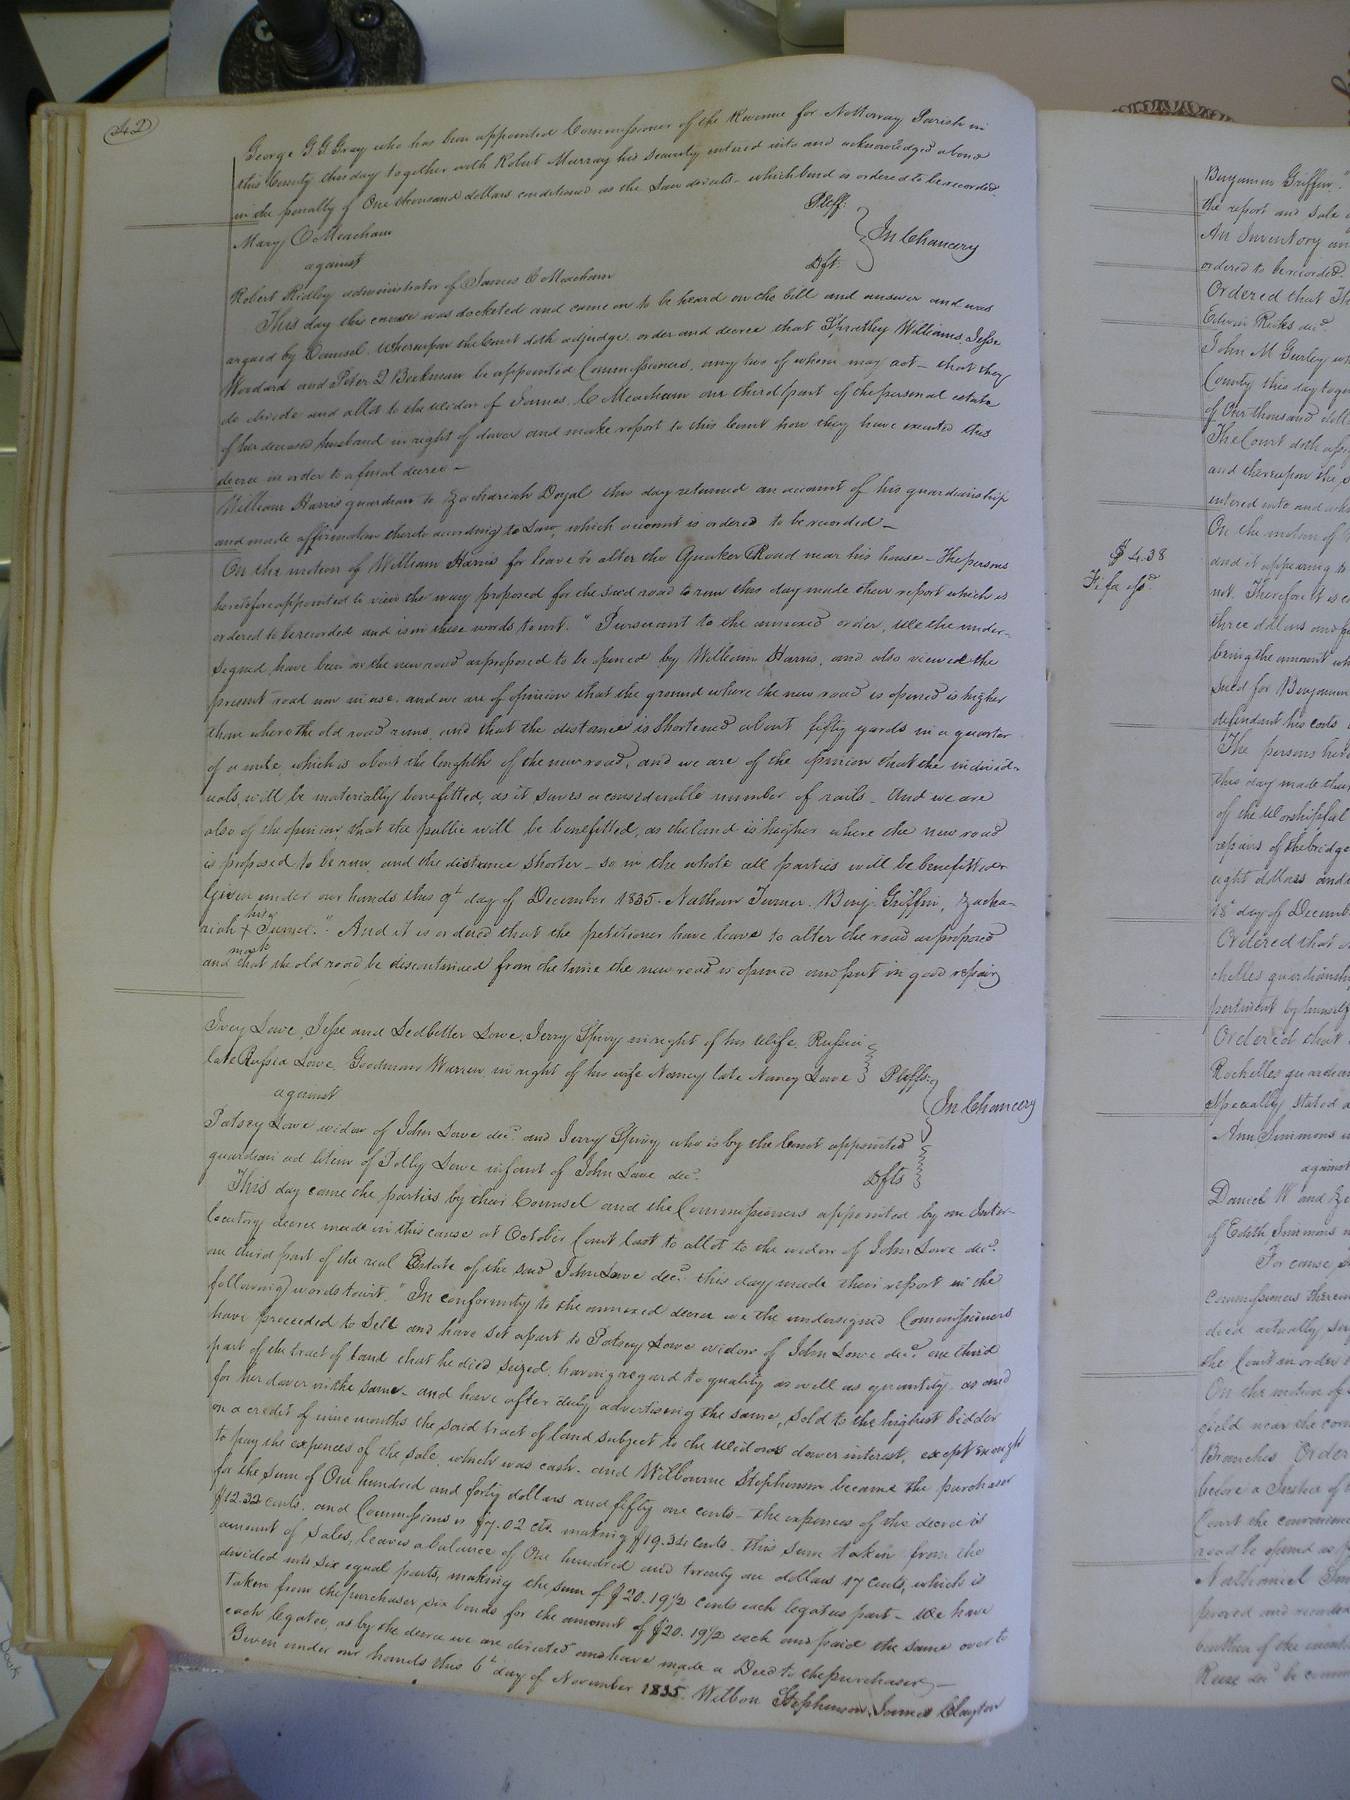 42
George G G Gray who has been appointed Commissioner of the Revenue for Nottoway Parish in
this County this day together with Robert Murray his security entered into and acknowledged a bond
in the penalty of One thousand dollars conditioned as the Law directs - which bond is ordered to be recorded.
Mary C Meacham Pltff:
against In Chancery
Robert Ridley administrator of James C Meacham Dft.
This day this cause was docketed and came on to be heard on the bill and answer and was
argued by Counsel. Whereupon the Court doth adjudge, order and decree that Spratley Williams, Jesse
Woodard and Peter D Beekman be appointed Commissioners, any two of whom may act - that they
do divide and allot to the widow of James C Meacham one third part of the personal estate
of her deceased husband in right of dower and make report to this Court how they have executed this
decree in order to a final decree -
William Harris guardian to Zachariah Doyal this day returned an account of his guardianship
and made affirmation thereto according to Law, which account is ordered to be recorded -
On the motion of William Harris for leave to alter the Quaker Road near his house - The persons
heretofore appointed to view the way proposed for the said road to run this day made their report which is
ordered to be recorded and is in these words to wit. "Pursuant to the annexed order, We the under-
signed have been on the new road as proposed to be opened by William Harris, and also viewed the
present road now in use, and we are of opinion that the ground where the new road is opened is higher
than where the old road runs, and that the distance is shortened about fifty yards in a quarter
of a mile, which is about the lenghth of the new road, and we are of the opinion that the individ-
uals, will be materially benefitted, as it saves a considerable number of rails - And we are
also of the opinion that the public will be benefitted, as the land is higher where the new road
is proposed to be run, and the distance shorter - so in the whole all parties will be benefitted
Given under our hands this 9th day of December 1835. Nathan Turner. Benj. Griffin, Zacha-
riah his X mark Turner." And it is ordered that the petitioner have leave to alter the road as proposed
and that the old road be discontinued from the time the new road is opened and put in good repair
Ivey Lowe, Jesse and Ledbetter Lowe, Jerry Spivy in right of his wife, Russia
late Russia Lowe, Goodman Warren, in right of his wife Nancy late Nancy Lowe Pltffs:
against In Chancery
Patsey Lowe widow of John Lowe decd. and Jerry Spivy who is by the Court appointed
guardian ad litem of Polly Lowe infant of John Lowe decd. Dfts
This day came the parties by their Counsel and the Commissioners appointed by an Inter-
locutory decree made in this cause at October Court last to allot to the widow of John Lowe decd.
one third part of the real Estate of the said John Lowe decd. this day made their report in the
following words towit. "In conformity to the annexed decree we the undersigned Commissioners
have proceeded to Sell and have set apart to Patsey Lowe widow of John Lowe decd. one third
part of the tract of land that he died seized, having regard to quality as well as quantity, as and
for her dower in the same - and have after duly advertising the same, sold to the highest bidder
on a credit of nine months the said tract of land subject to the Widows dower interest, except enough
to pay the expences of the sale, which was cash. and Wilbourne Stephenson became the purchaser
for the sum of One hundred and forty dollars and fifty one cents - the expences of the decree is
$12.32 cents. and Commissions is $7.02 cts. making $19.34 cents. this sum taken from the
amount of sales, leaves a balance of One hundred and twenty one dollars 17 cents, which is
divided into six equal parts, making the sum of $20.19½ cents each legatees part - We have
taken from the purchaser six bonds for the amount of $20.19½ each and paid the same over to
each legatee, as by the decree we are directed and have made a Deed to the purchaser -
Given under our hands this 6th day of November 1835. Wilbon Stephenson, James Clayton
Benjamin Griffin
the report and sale
An Inventory
ordered to be recorded.
Ordered that
Edwin Ricks decd.
John M Gurley
County this day
of One thousand
The Court doth
and thereupon the
entered into and
On the motion of
$4.38
Fi fa
and it appearing to
not. Therefore it is
three dollars and
being the amount
sued for Benjamin
defendant his costs
The persons
this day made their
of the Worshipful
repairs of the bridge
eight dollars and
18th day of
Ordered that
guardianship
by himself
Ordered that
Rochelles guardian
Specially stated
Ann Simmons
against
Daniel W and
of Edith Simmons
For cause
Commissioners
died actually
the Court in order
On the motion of
field near the
Branches Order
before a Justice of
Court the convenience
road be opened as
Nathaniel
proved and
brother of the
decd. be